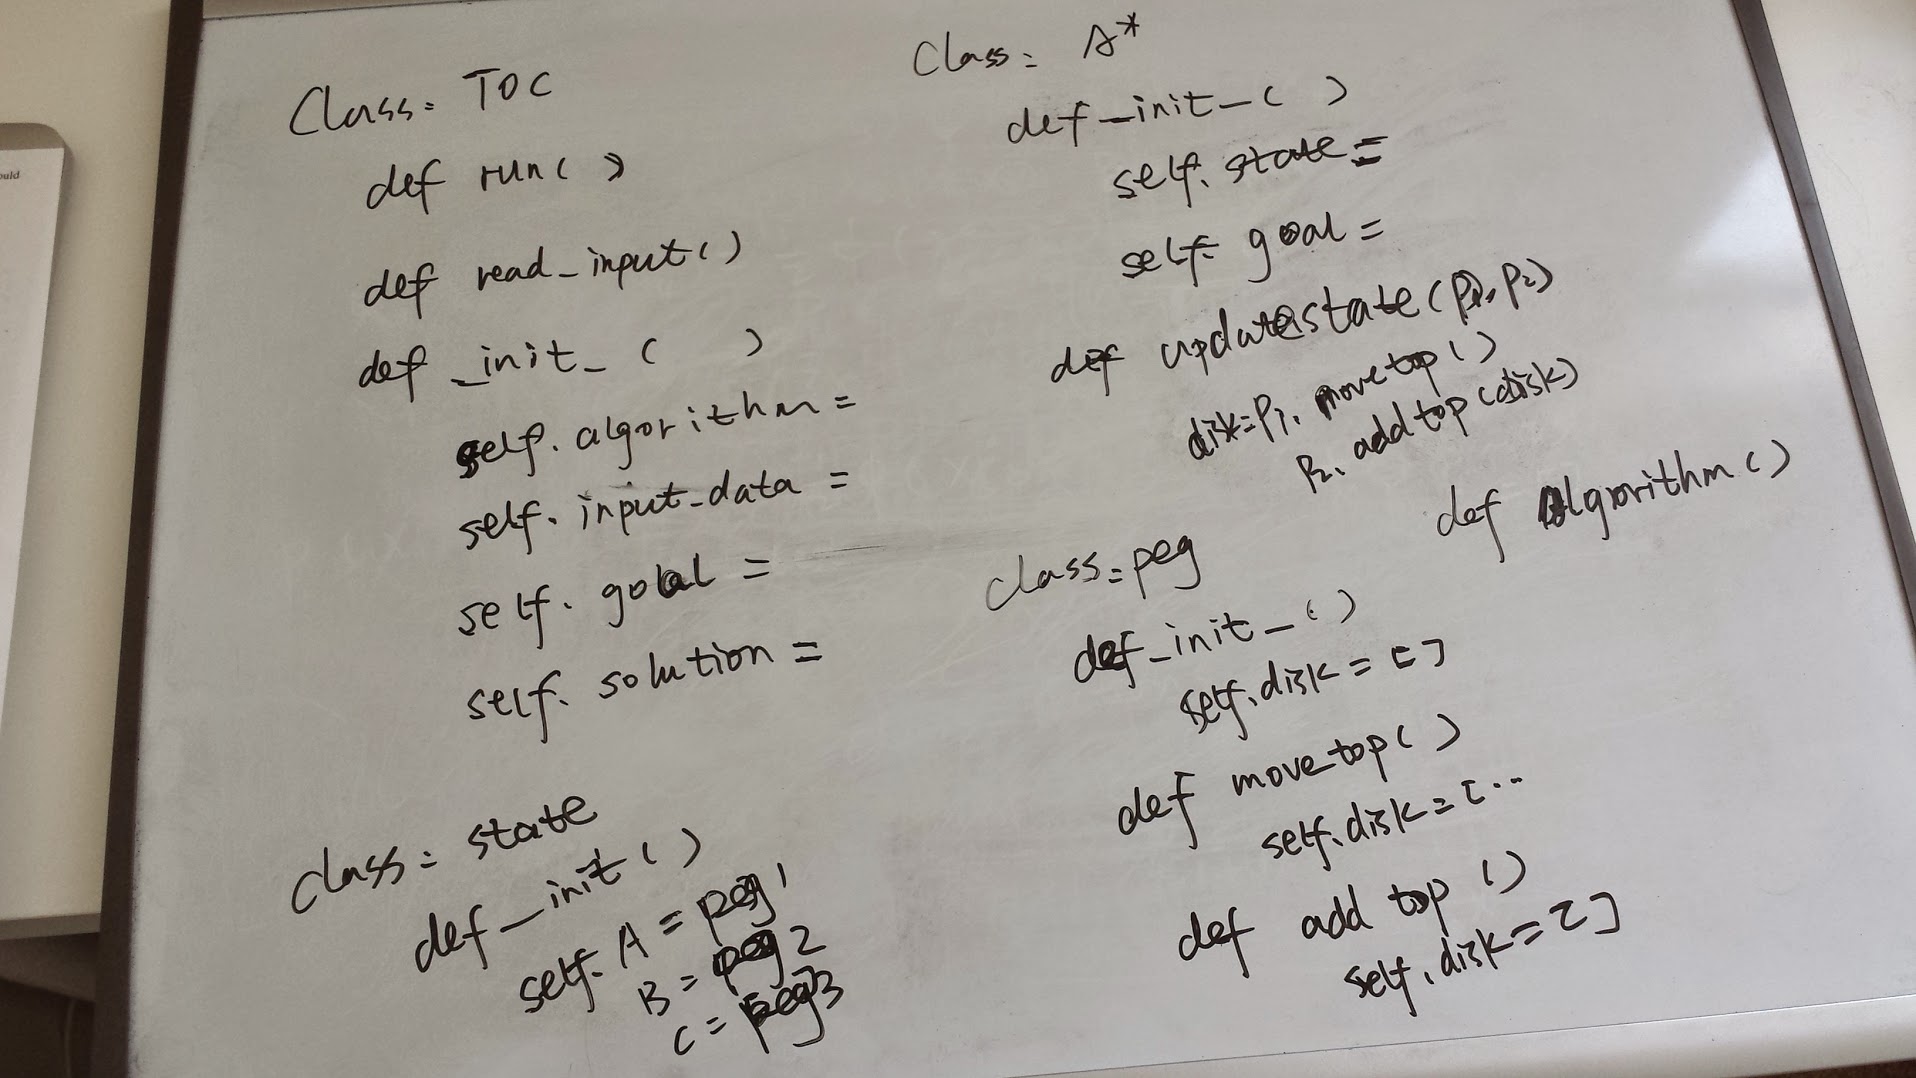 Class: TOC
def run( )
def read_input( )
def _init_ ( )
self. algorithm =
self. input_data =
self. goal =
self. solution =
Class: state
def _init ( )
self. A = peg 1
B = peg 2
C = peg 3
Class: A*
def _init_( )
self. state =
self. goal =
def updatestate (P1, P2)
disk = P1. movetop ( )
P2. add top (disk)
def algorithm ( )
Class: peg
def _init_ ( )
self. disk = [ ]
def movetop ( )
self. disk = [ ...
def add top ( )
self. disk = [ ]
ould